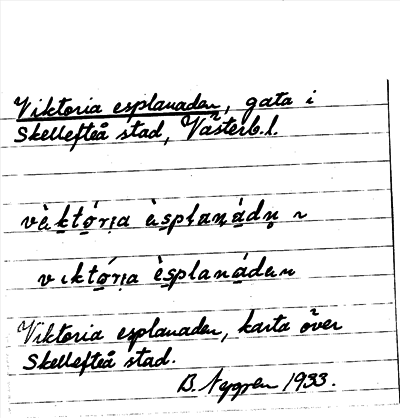 Viktoria esplanaden, gata i
Skellefteå stad, Västerb.l.
vèktó̱ri̱a èsplaṉádn̥ ~
vıktó̱ri̱a ès̱plaṉáden
Viktoria esplanaden, karta över
Skellefteå stad.
B. Nygren 1933.